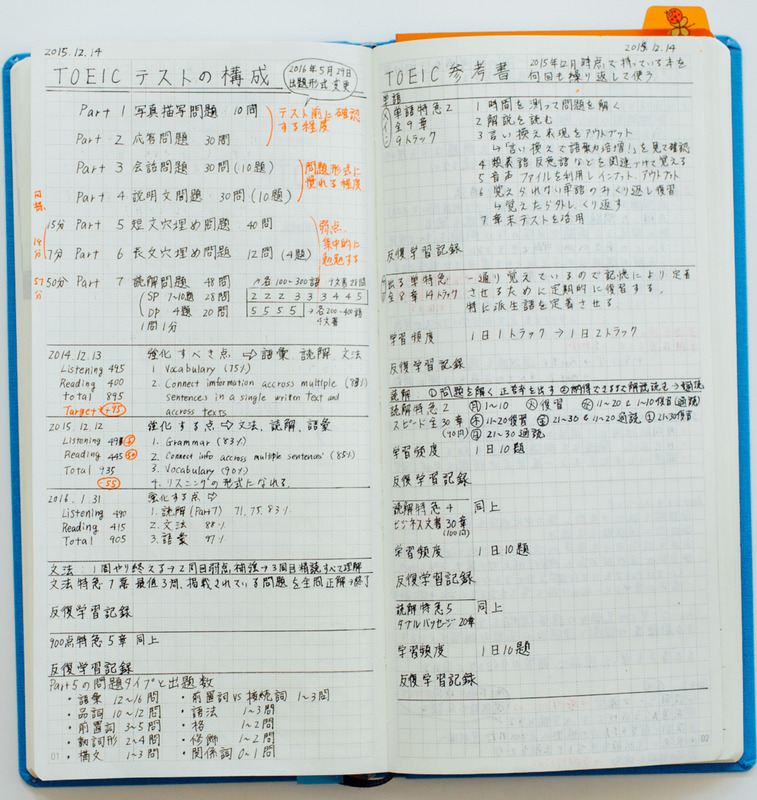 2015.12.14
TOEIC テストの構成
2016年5月29日
出題形式 変更
Part 1 写真描写問題 10問
Part 2 応答問題 30問
テスト前に確認
する程度
Part 3 会話問題 30問(10題)
Part 4 説明文問題 30問(10題)
問題形式に
慣れる程度
15分 Part 5 短文穴埋め問題 40問
7分 Part 6 長文穴埋め問題 12問(4題)
弱点
集中的に
勉強する
50分 Part 7 読解問題 48問
57分
SP 7~10題 28問
DP 4題 20問
1問1分
各100~300語 9文書28問
2 2 2 3 3 3 4 4 5
5 5 5 5 →各200~400語
4文書
2014.12.13 強化すべき点 ⇨語彙 読解 文法
Listening 495 1. Vocabulary (75%)
Reading 400 2. Connect imformation accross multiple
total 895 sentences in a single written text and
Target +95 accross texts
2015.12.12 強化する点⇨文法、読解、語彙
Listening 1. Grammar (83%)
Reading 445 2. Connect info accross multiple sentences (85%)
Total 935 3. Vocabulary (90%)
-55 4. リスニングの形式になれる
2016.1.31 強化する点⇨
Listening 490 1. 読解(Part7) 71, 75, 83%
Reading 415 2. 文法 88%
Total 905 3. 語彙 97%
文法:1周やり終える→2周目弱点補強→3周目精読すべて理解
文法特急 7章 最低3周、掲載されている問題を全問正解→終了
反復学習記録
900点特急 5章 同上
反復学習記録
Part5の問題タイプと出題数
・語彙 12~16問 ・前置詞 vs 接続詞 1~3問
・品詞 10~12問 ・語法 1~3問
・前置詞 3~5問 ・格 1~2問
・動詞形 2~4問 ・修飾 1~2問
・構文 1~3問 ・関係詞 0~1問
01
2015.12.14
TOEIC 参考書
2015年12月時点で持っている本を
何回も繰り返して使う
単語
メイン
単語特急2
全9章
9トラック
1 時間を測って問題を解く
2 解説を読む
3 言い換え表現をアウトプット
↳「言い換えで語彙力倍増!」を見て確認
4 類義語 反意語などを関連づけて覚える
5 音声ファイルを利用しインプット、アウトプット
6 覚えられない単語のみくり返し復習
↳覚えたら外し、くり返す
7 章末テストを活用
反復学習記録
出る単特急 一通り覚えているので記憶により定着
全8章 14トラック させるために定期的に復習する。
特に派生語を定着させる。
学習頻度 1日1トラック→1日2トラック
反復学習記録
読解 ①問題を解く 正答率を出す ②納得できるまで解説読む
読解特急2 ㊊1~10 ㊋復習 ㊌11~20と1~10復習(通読)
スピード全30章 ㊍11~20復習 ㊎21~30と11~20通読 ㊏21~30復習
(90問) ㊐21~30通読
学習頻度 1日10題
反復学習記録
読解特急4 同上
ビジネス文書30章
(100問)
学習頻度 1日10題
反復学習記録
読解特急5 同上
ダブルパッセージ20章
学習頻度 1日10題
反復学習記録
02